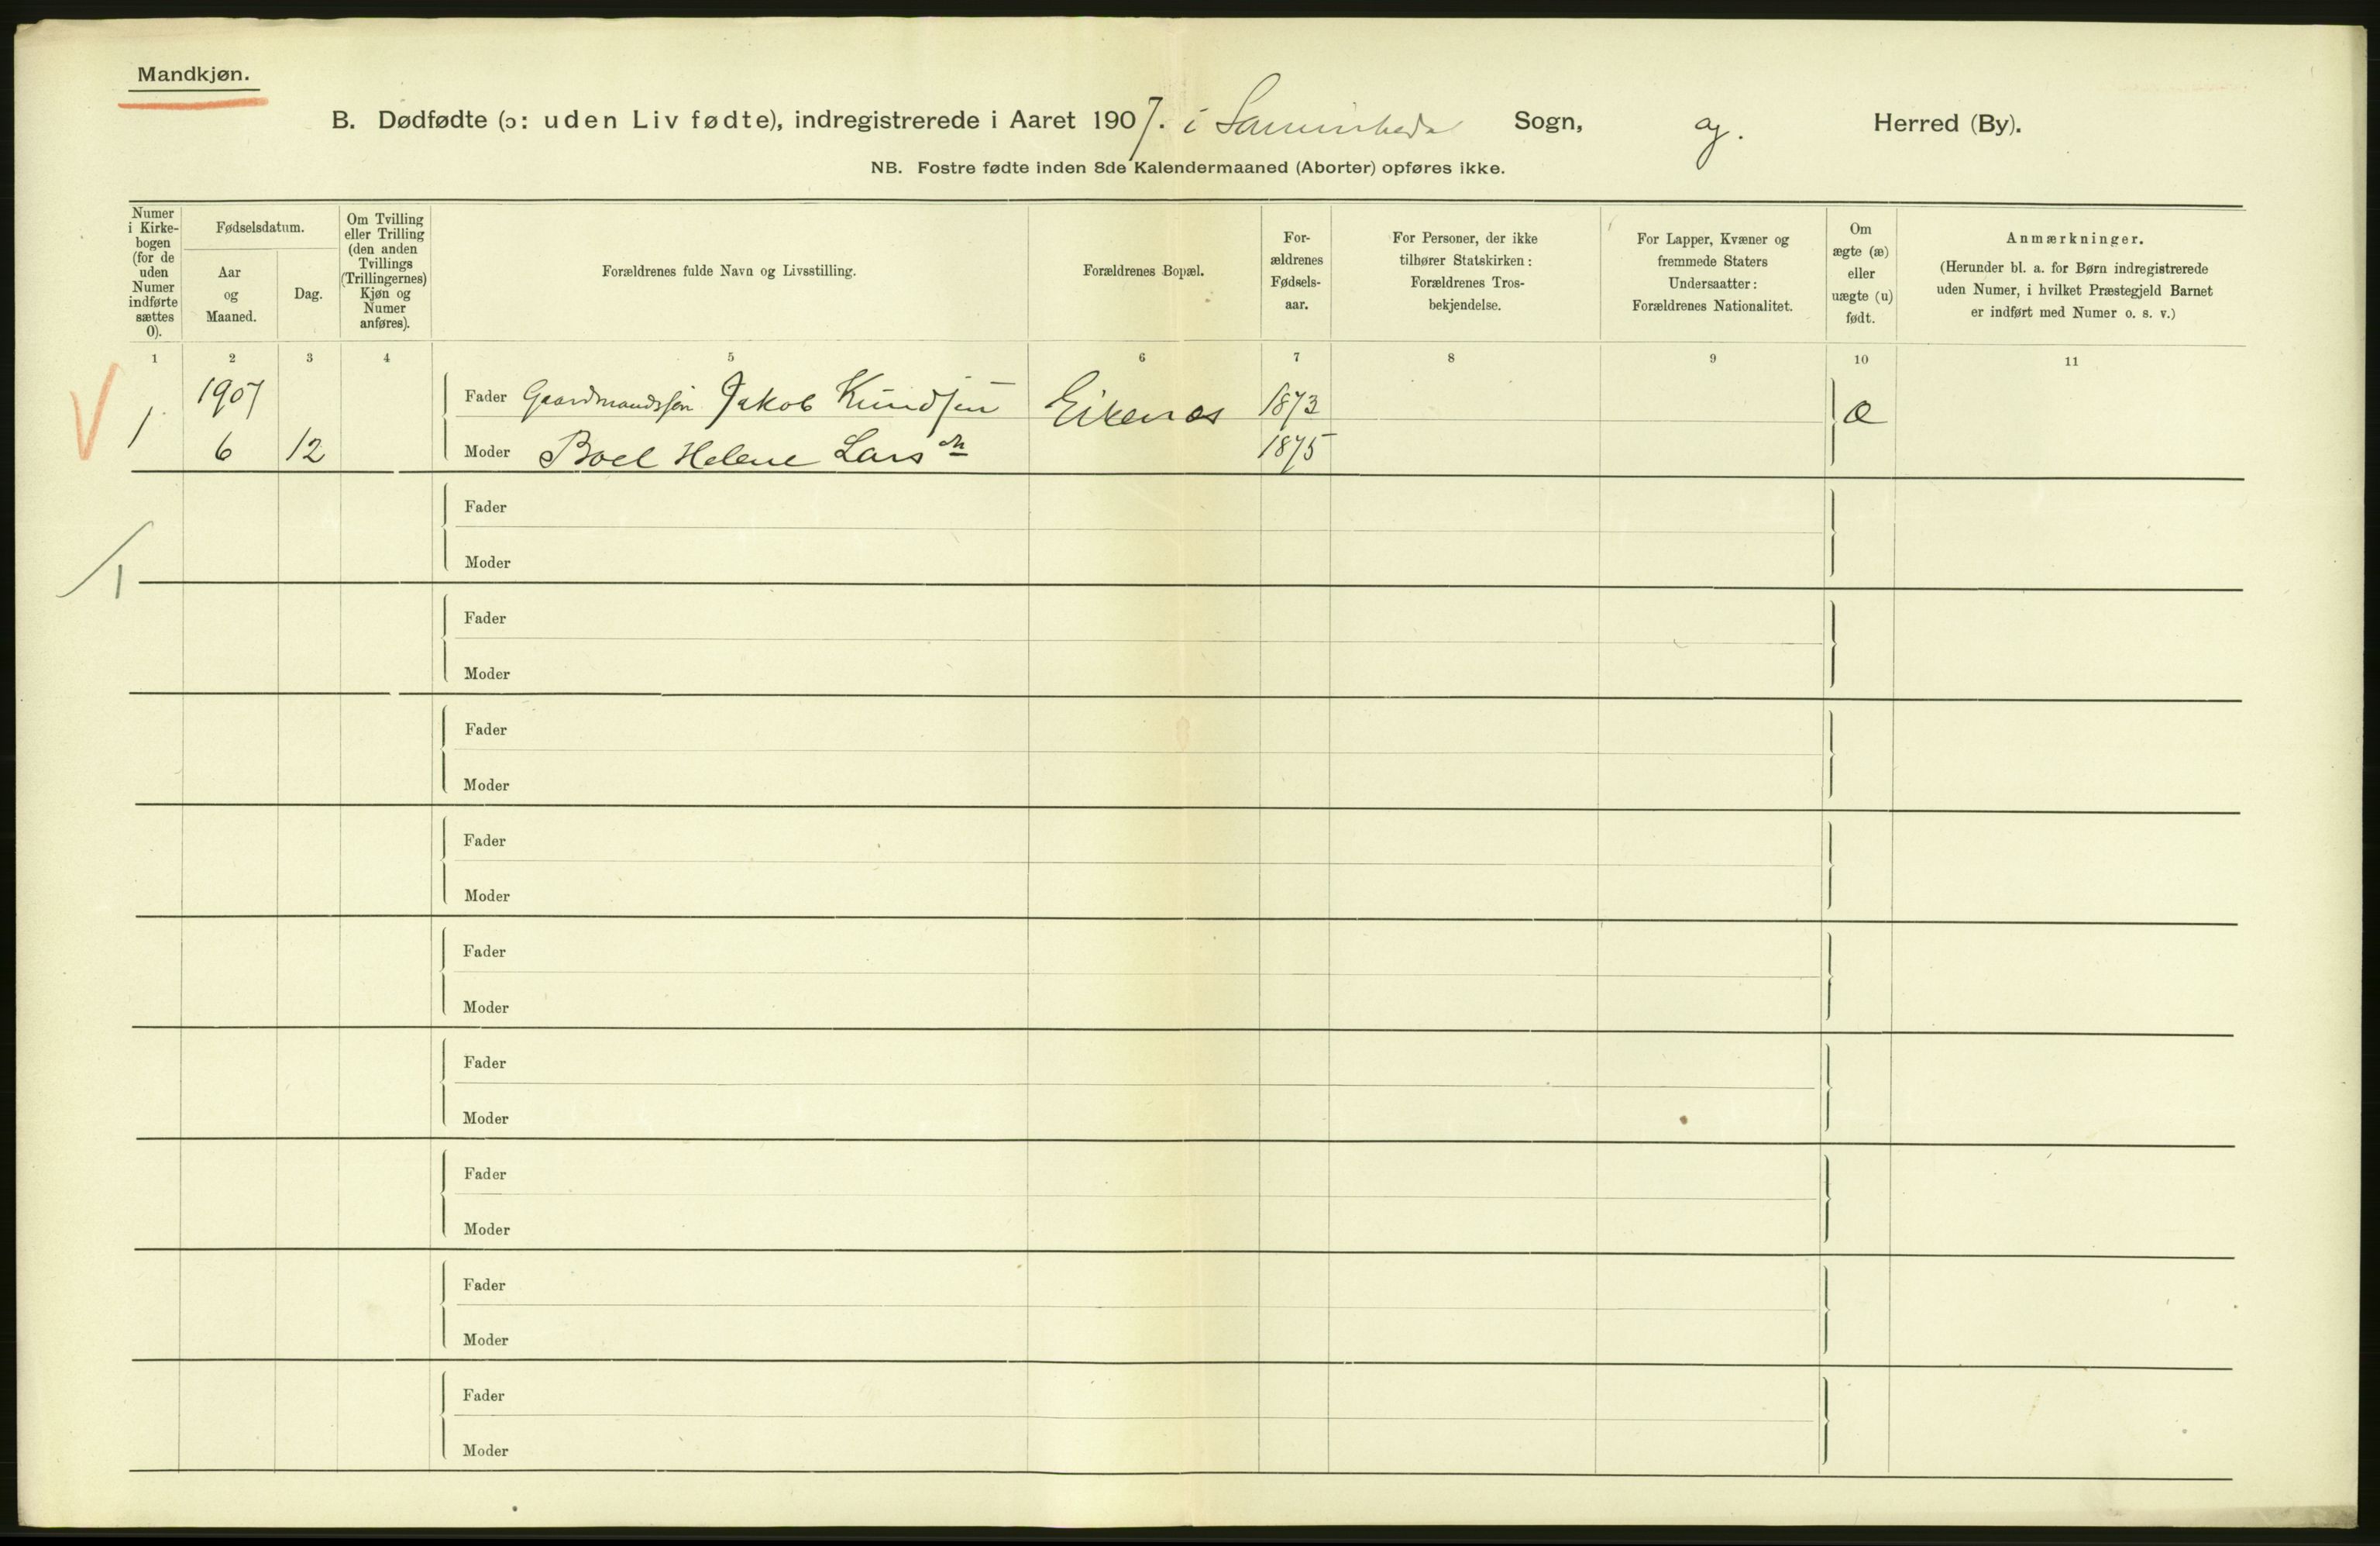 Mandkjøn.
B. Dødfødte (ɔ: uden Liv fødte), indregistrerede i Aaret 1907. i Sogn, og. Herred (By).
NB. Fostre fødte inden 8de Kalendermaaned (Aborter) opføres ikke.
Numer
i Kirke-
bogen
(for de
uden
Numer
indførte
sættes
0).
Fødselsdatum.
Aar
og
Maaned.
Dag.
Om Tvilling
eller Trilling
(den anden
Tvillings
(Trillingernes)
Kjøn og
Numer
anføres).
Forældrenes fulde Navn og Livsstilling.
Forældrenes Bopæl.
For-
ældrenes
Fødsels-
aar.
For Personer, der ikke
tilhører Statskirken:
Forældrenes Tros-
bekjendelse.
For Lapper, Kvæner og
fremmede Staters
Undersaatter:
Forældrenes Nationalitet.
Om
ægte (æ)
eller
uægte (u)
født.
Anmærkninger.
(Herunder bl. a. for Børn indregistrerede
uden Numer, i hvilket Præstegjeld Barnet
er indført med Numer o. s. v.)
1 2 3 4 5 6 7 8 9 10 11
1. 1907 Fader Gaardmandssøn Jakob Knudsen Eikenæs 1873 æ
6 12 Moder Boel Helene Larsdtr 1875
Fader
Moder
1
Fader
Moder
Fader
Moder
Fader
Moder
Fader
Moder
Fader
Moder
Fader
Moder
Fader
Moder
Fader
Moder